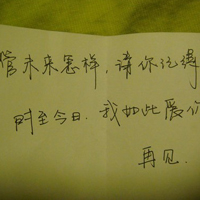 管未来怎样，请你记得
时至今日，我如此爱你
再见.